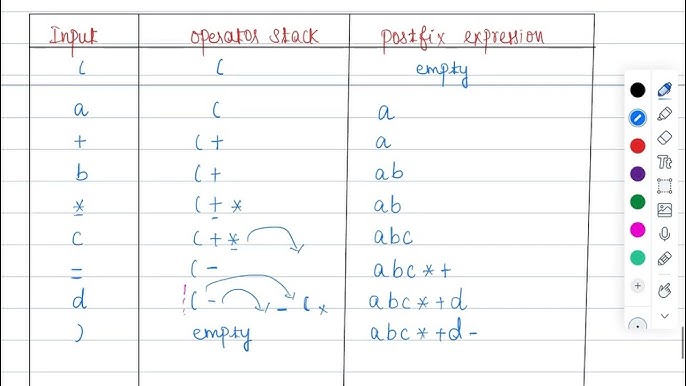 Input operator stack postfix expression
( ( empty
a ( a
+ (+ a
b (+ ab
* (+* ab
c (+* abc
= (- abc*+
d (- - (x abc*+d
) empty abc*+d-
Tt